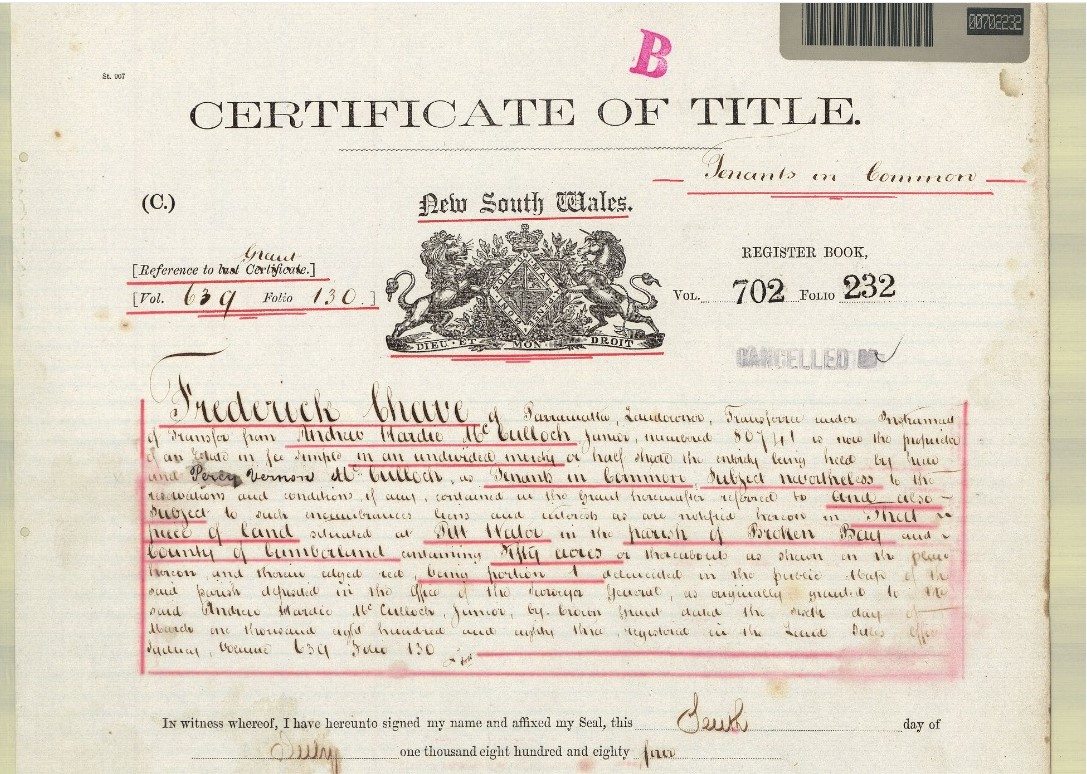 00702232
B
St. 007
CERTIFICATE OF TITLE.
Tenants in Common
(C.)
New South Wales.
Grant
[Reference to last Certificate.]
[Vol. 639 Folio 130.]
DIEU ET MON DROIT
REGISTER BOOK,
Vol. 702 Folio 232
CANCELLED
Frederick Chave of Parramatta, Landowner, Transferree under Instrument
of Transfer from Andrew Hardie McCulloch Junior, numbered 80741 is now the proprietor
of an Estate in fee simple in an undivided moiety or half share the entirety being held by him
and Percy Vernon McCulloch, as Tenants in Common Subject nevertheless to the
reservations and conditions, if any, contained in the Grant hereinafter referred to and also
Subject to such incumbrances liens and interests as are notified hereon in That
piece of land situated at Pitt Water in the parish of Broken Bay and
County of Cumberland containing Fifty acres or thereabouts as shewn in the plan
hereon, and therein edged red, being portion 1 delineated in the public Map of the
said parish deposited in the Office of the Surveyor General, as originally granted to the
said Andrew Hardie McCulloch, Junior, by Crown Grant dated the sixth day of
March one thousand eight hundred and eighty three, registered in the Land Titles Office
Sydney, Volume 639 Folio 130
In witness whereof, I have hereunto signed my name and affixed my Seal, this Tenth day of
July one thousand eight hundred and eighty four